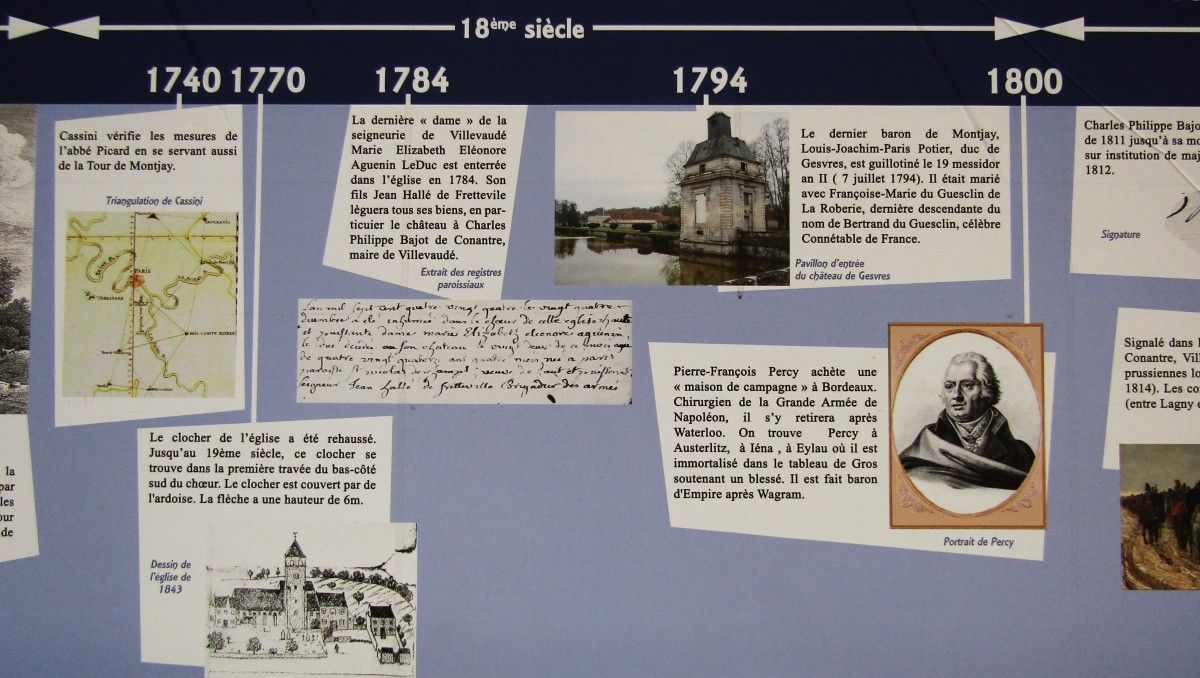 18ème siècle
1740
1770
1784
1794
1800
Cassini vérifie les mesures de
l'abbé Picard en se servant aussi
de la Tour de Montjay.
Triangulation de Cassini
PARIS
La dernière « dame » de la
seigneurie de Villevaudé
Marie Elizabeth Eléonore
Aguenin LeDuc est enterrée
dans l'église en 1784. Son
fils Jean Hallé de Frettevile
lèguera tous ses biens, en par-
ticuier le château à Charles
Philippe Bajot de Conantre,
maire de Villevaudé.
Extrait des registres
paroissiaux
Lan mil sept cent quatre vingt quatre le vingt quatre
et puissante dame marie Elizabeth eleonore aguenin
de quatre vingt quatorze ans quatre mois née a paris
seigneur Jean hallé de fretteville Brigadier des armé
Le dernier baron de Montjay,
Louis-Joachim-Paris Potier, duc de
Gesvres, est guillotiné le 19 messidor
an II ( 7 juillet 1794). Il était marié
avec Françoise-Marie du Guesclin de
La Roberie, dernière descendante du
nom de Bertrand du Guesclin, célèbre
Connétable de France.
Pavillon d'entrée
du château de Gesvres
Charles Philippe Bajot
de 1811 jusqu'à sa mo
sur institution de maj
1812.
Signature
Le clocher de l'église a été rehaussé.
Jusqu'au 19ème siècle, ce clocher se
trouve dans la première travée du bas-côté
sud du chœur. Le clocher est couvert par de
l'ardoise. La flèche a une hauteur de 6m.
Dessin de
l'église de
1843
Pierre-François Percy achète une
« maison de campagne » à Bordeaux.
Chirurgien de la Grande Armée de
Napoléon, il s'y retirera après
Waterloo. On trouve Percy à
Austerlitz, à Iéna , à Eylau où il est
immortalisé dans le tableau de Gros
soutenant un blessé. Il est fait baron
d'Empire après Wagram.
Portrait de Percy
Signalé dans l
Conantre, Vil
prussiennes lo
1814). Les co
(entre Lagny e
la
par
les
our
de